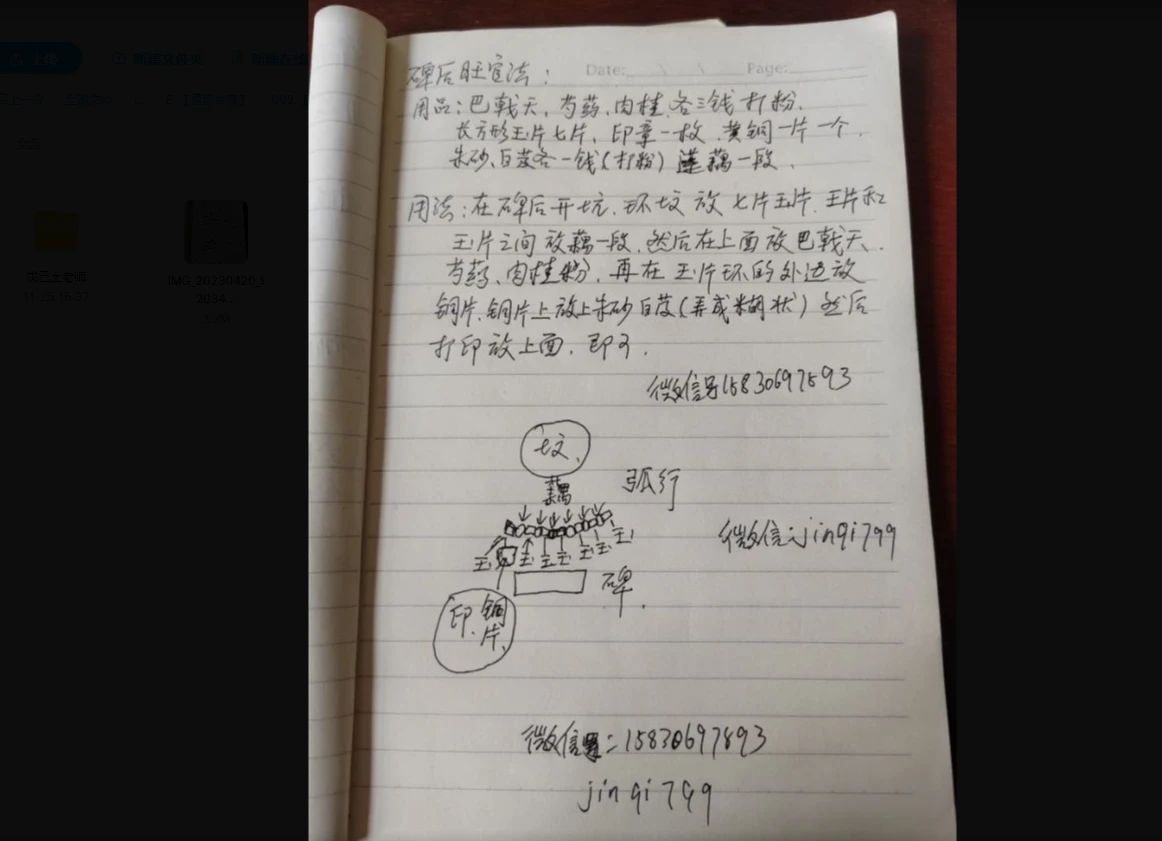 新建文件夹
Date: Page:
碑后旺官法：
用品：巴戟天、芍药、肉桂、各三钱 打粉、
长方形玉片七片、印章一枚、黄铜一片一个、
朱砂、白芨各一钱（打粉）莲藕一段、
用法：在碑后开坑、环坟放七片玉片、玉片和
玉片之间放藕一段、然后在上面放巴戟天、
芍药、肉桂粉、再在玉片环的外边放
铜片、铜片上放上朱砂白芨（弄成糊状）然后
打印放上面、即可、
微信号15830697593
坟、
藕
弧行
玉 玉 玉 玉 玉 玉 玉
微信：jinqi799
碑、
印、铜片、
微信：15830697893
jinqi799
IMG_20230420_1